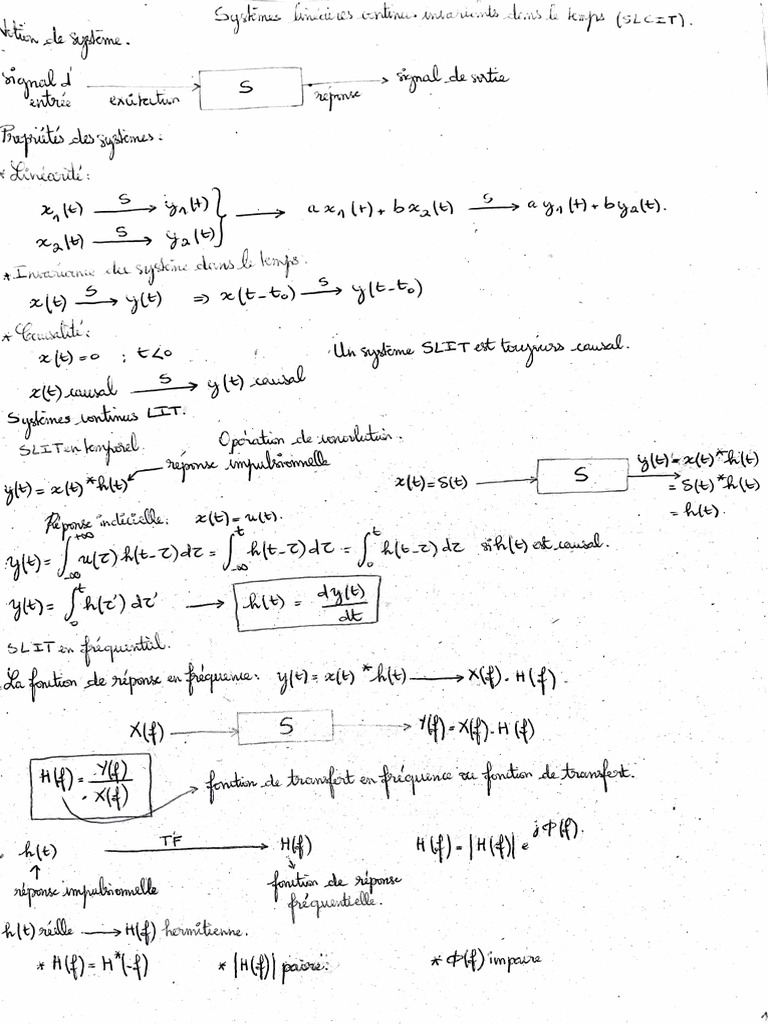 Systèmes linéaires continus invariants dans le temps (SLCIT).
Notion de système.
signal d'entrée excitation S réponse signal de sortie
Propriétés des systèmes :
* Linéarité :
x₁(t) —S→ y₁(t)
x₂(t) —S→ y₂(t) } → a x₁(t) + b x₂(t) —S→ a y₁(t) + b y₂(t).
* Invariance du système dans le temps.
x(t) —S→ y(t) ⇒ x(t-t₀) —S→ y(t-t₀)
* Causalité :
x(t) = 0 ; t<0 Un système SLIT est toujours causal.
x(t) causal —S→ y(t) causal
Systèmes continus LIT.
SLIT en temporel. Opération de convolution.
y(t) = x(t) * h(t) ← réponse impulsionnelle x(t) = δ(t) → S → y(t) = x(t) * h(t)
= δ(t) * h(t)
= h(t).
Réponse indicielle : x(t) = u(t).
y(t) = ∫_{-∞}^{+∞} u(τ) h(t-τ) dτ = ∫_{-∞}^{t} h(t-τ) dτ = ∫_0^t h(t-τ) dτ si h(t) est causal.
y(t) = ∫_0^t h(τ') dτ' → h(t) = dy(t)/dt
SLIT en fréquentiel.
La fonction de réponse en fréquence : y(t) = x(t) * h(t) → X(f) . H(f).
X(f) → S → Y(f) = X(f) . H(f)
H(f) = Y(f)/X(f) → fonction de transfert en fréquence ou fonction de transfert.
h(t) —TF→ H(f) H(f) = |H(f)| e^{jΦ(f)}.
↑ réponse impulsionnelle ↓ fonction de réponse
fréquentielle.
h(t) réelle → H(f) hermitienne.
* H(f) = H*(-f) * |H(f)| paire. * Φ(f) impaire
1